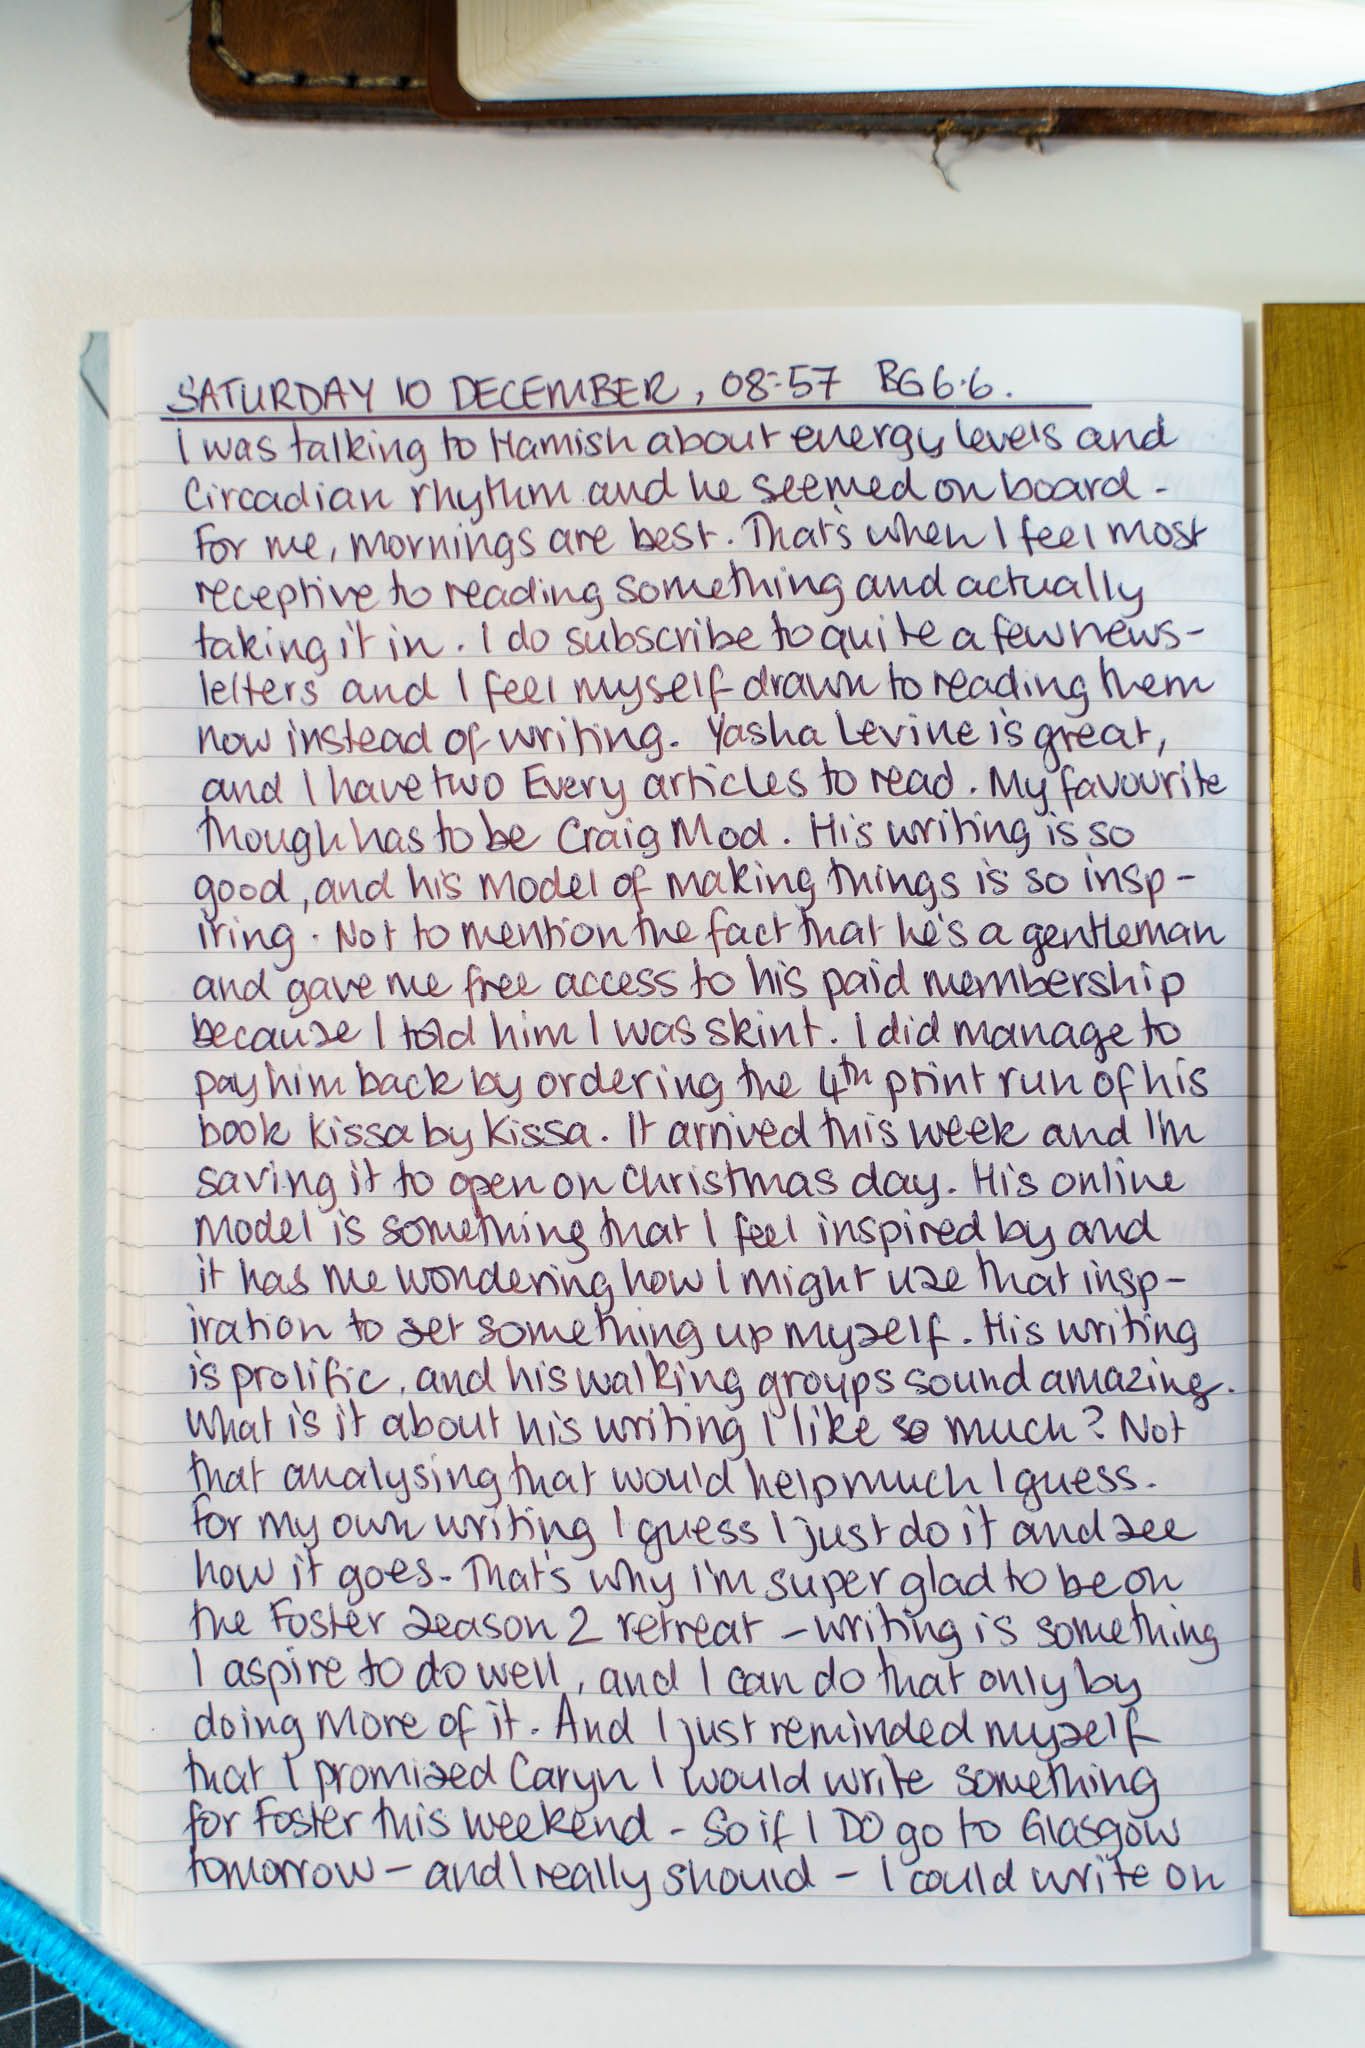 SATURDAY 10 DECEMBER, 08:57 BG 6.6.
I was talking to Hamish about energy levels and
Circadian rhythm and he seemed on board -
For me, mornings are best. That's when I feel most
receptive to reading something and actually
taking it in. I do subscribe to quite a few news-
letters and I feel myself drawn to reading them
now instead of writing. Yasha Levine is great,
and I have two Every articles to read. My favourite
though has to be Craig Mod. His writing is so
good, and his model of making things is so insp-
iring. Not to mention the fact that he's a gentleman
and gave me free access to his paid membership
because I told him I was skint. I did manage to
pay him back by ordering the 4th print run of his
book Kissa by Kissa. It arrived this week and I'm
saving it to open on Christmas day. His online
model is something that I feel inspired by and
it has me wondering how I might use that insp-
iration to set something up myself. His writing
is prolific, and his walking groups sound amazing.
What is it about his writing I like so much? Not
that analysing that would help much I guess.
For my own writing I guess I just do it and see
how it goes. That's why I'm super glad to be on
the Foster Season 2 retreat - writing is something
I aspire to do well, and I can do that only by
doing more of it. And I just reminded myself
that I promised Caryn I would write something
for Foster this weekend - So if I DO go to Glasgow
tomorrow - and I really should - I could write on